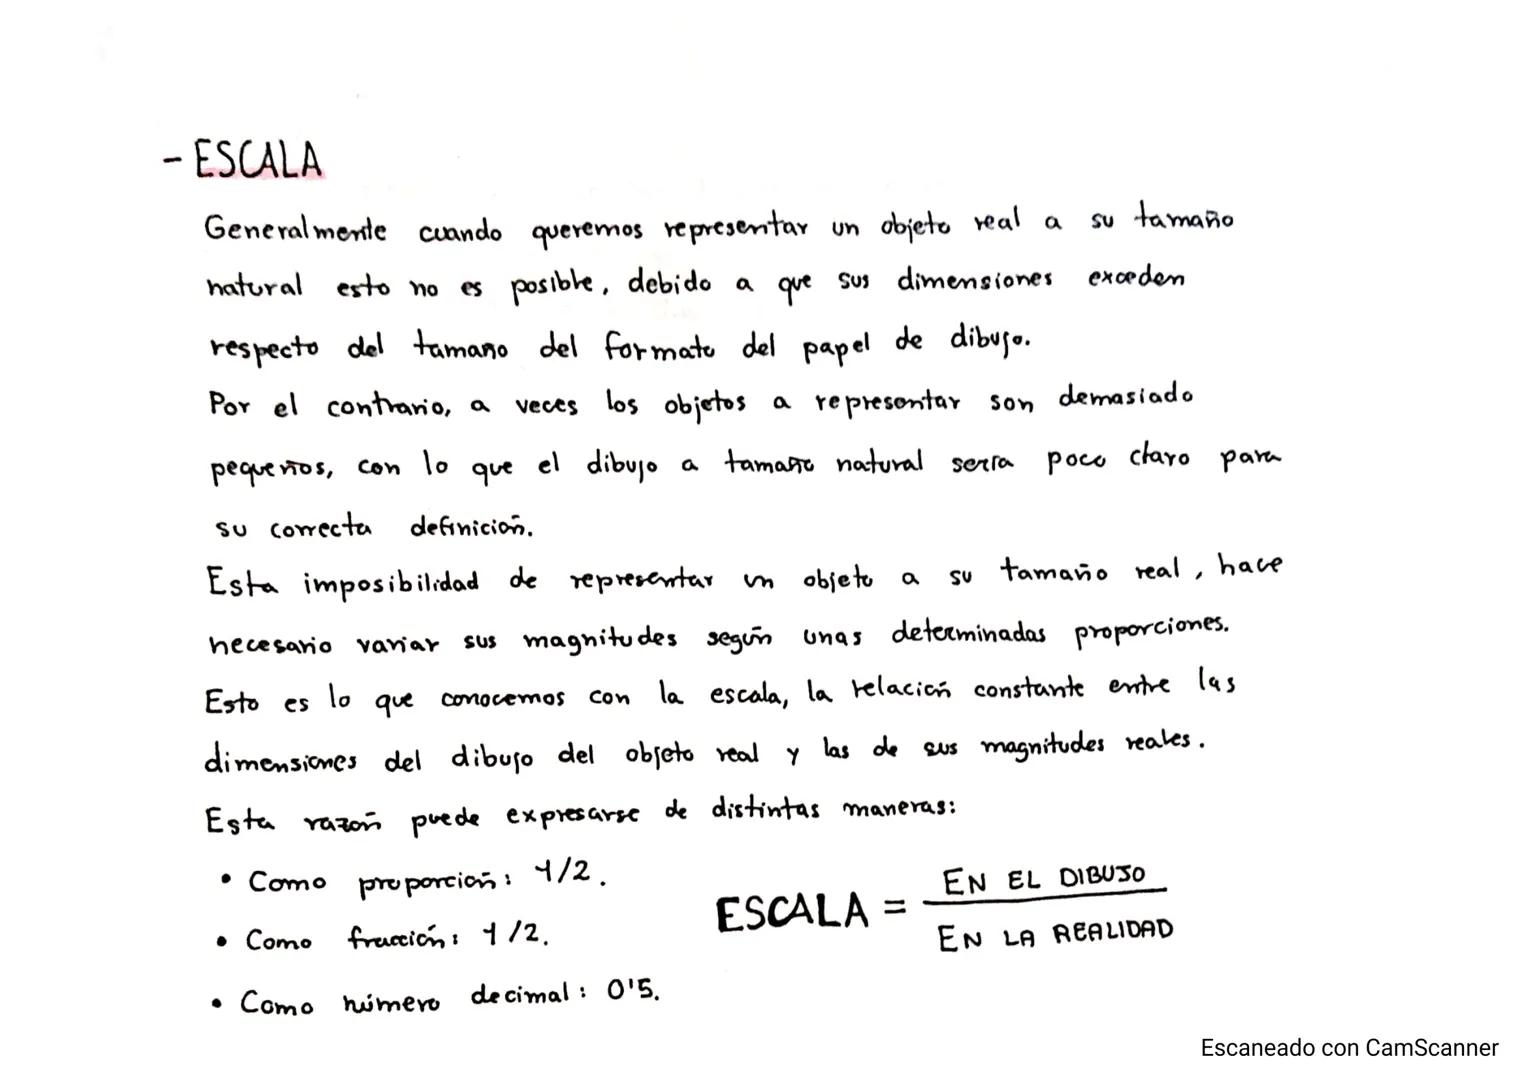 - ESCALA
Generalmente cuando queremos representar un objeto real a su tamaño
natural esto no es posible, debido a que sus dimensiones exceden
respecto del tamaño del formato del papel de dibujo.
Por el contrario, a veces los objetos a representar son demasiado
pequeños, con lo que el dibujo a tamaño natural sería poco claro para
su correcta definición.
Esta imposibilidad de representar un objeto a su tamaño real, hace
necesario variar sus magnitudes según unas determinadas proporciones.
Esto es lo que conocemos con la escala, la relación constante entre las
dimensiones del dibujo del objeto real y las de sus magnitudes reales.
Esta razón puede expresarse de distintas maneras:
• Como proporción: 1/2.
• Como fracción: 1/2.
• Como número decimal: 0'5.
ESCALA = EN EL DIBUJO
EN LA REALIDAD
Escaneado con CamScanner